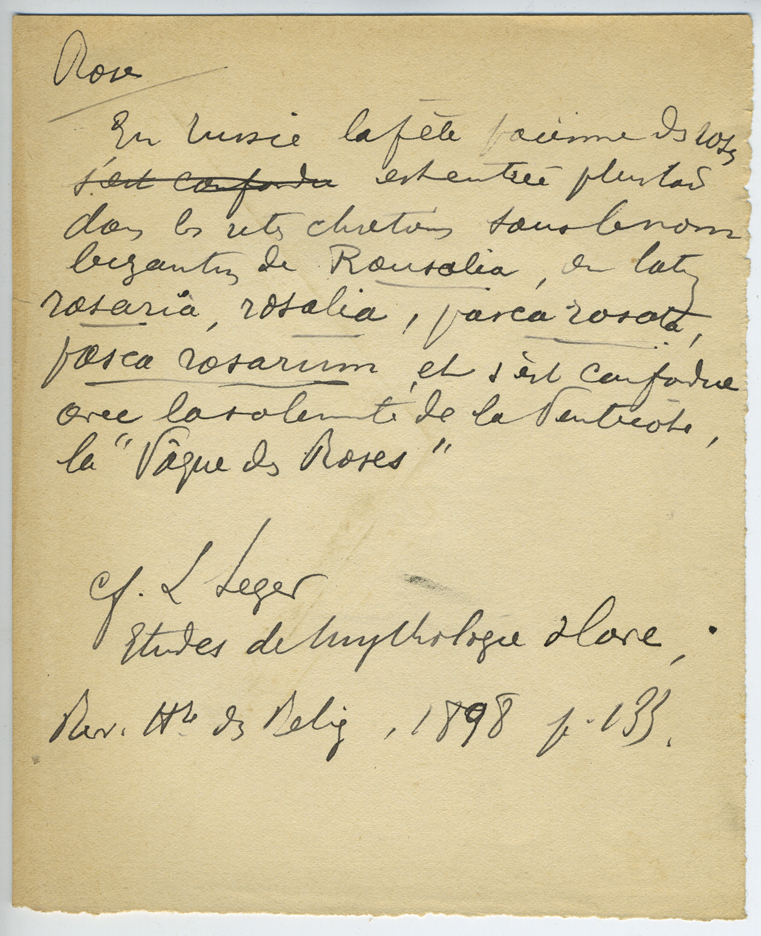 Rose
En Russie la fête païenne des roses
s'est confondu est entrée plus tard
dans les rites chrétiens sous le nom
byzantin de Rousalia, en latin
rosaria, rosalia, pasca rosata,
pasca rosarum et s'est confondue
avec la solennité de la Pentecôte,
la "Pâque des Roses"
cf. L Leger
Etudes de Mythologie slave,
Rev. Hre des Relig, 1898 p. 133.